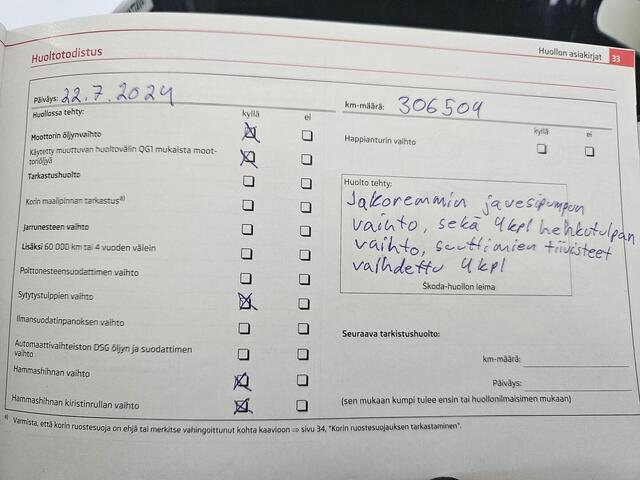 Huoltotodistus
Huollon asiakirjat 33
Päiväys: 22.7.2024
km-määrä: 306509
Huollossa tehty:
kyllä ei
kyllä ei
Moottorin öljynvaihto
Happianturin vaihto
Käytetty muuttuvan huoltovälin QG1 mukaista moot-
toriöljyä
Tarkastushuolto
Korin maalipinnan tarkastusa)
Jarrunesteen vaihto
Lisäksi 60 000 km tai 4 vuoden välein
Polttonesteensuodattimen vaihto
Sytytystulppien vaihto
Ilmansuodatinpanoksen vaihto
Automaattivaihteiston DSG öljyn ja suodattimen
vaihto
Hammashihnan vaihto
Hammashihnan kiristinrullan vaihto
Huolto tehty:
Jakoremmin javesipumpun
vaihto, sekä 4kpl hehkutulpan
vaihto, suuttimien tiivisteet
vaihdettu 4kpl
Škoda-huollon leima
Seuraava tarkistushuolto:
km-määrä:
Päiväys:
(sen mukaan kumpi tulee ensin tai huollonilmaisimen mukaan)
a) Varmista, että korin ruostesuoja on ehjä tai merkitse vahingoittunut kohta kaavioon ⇒ sivu 34, "Korin ruostesuojauksen tarkastaminen".